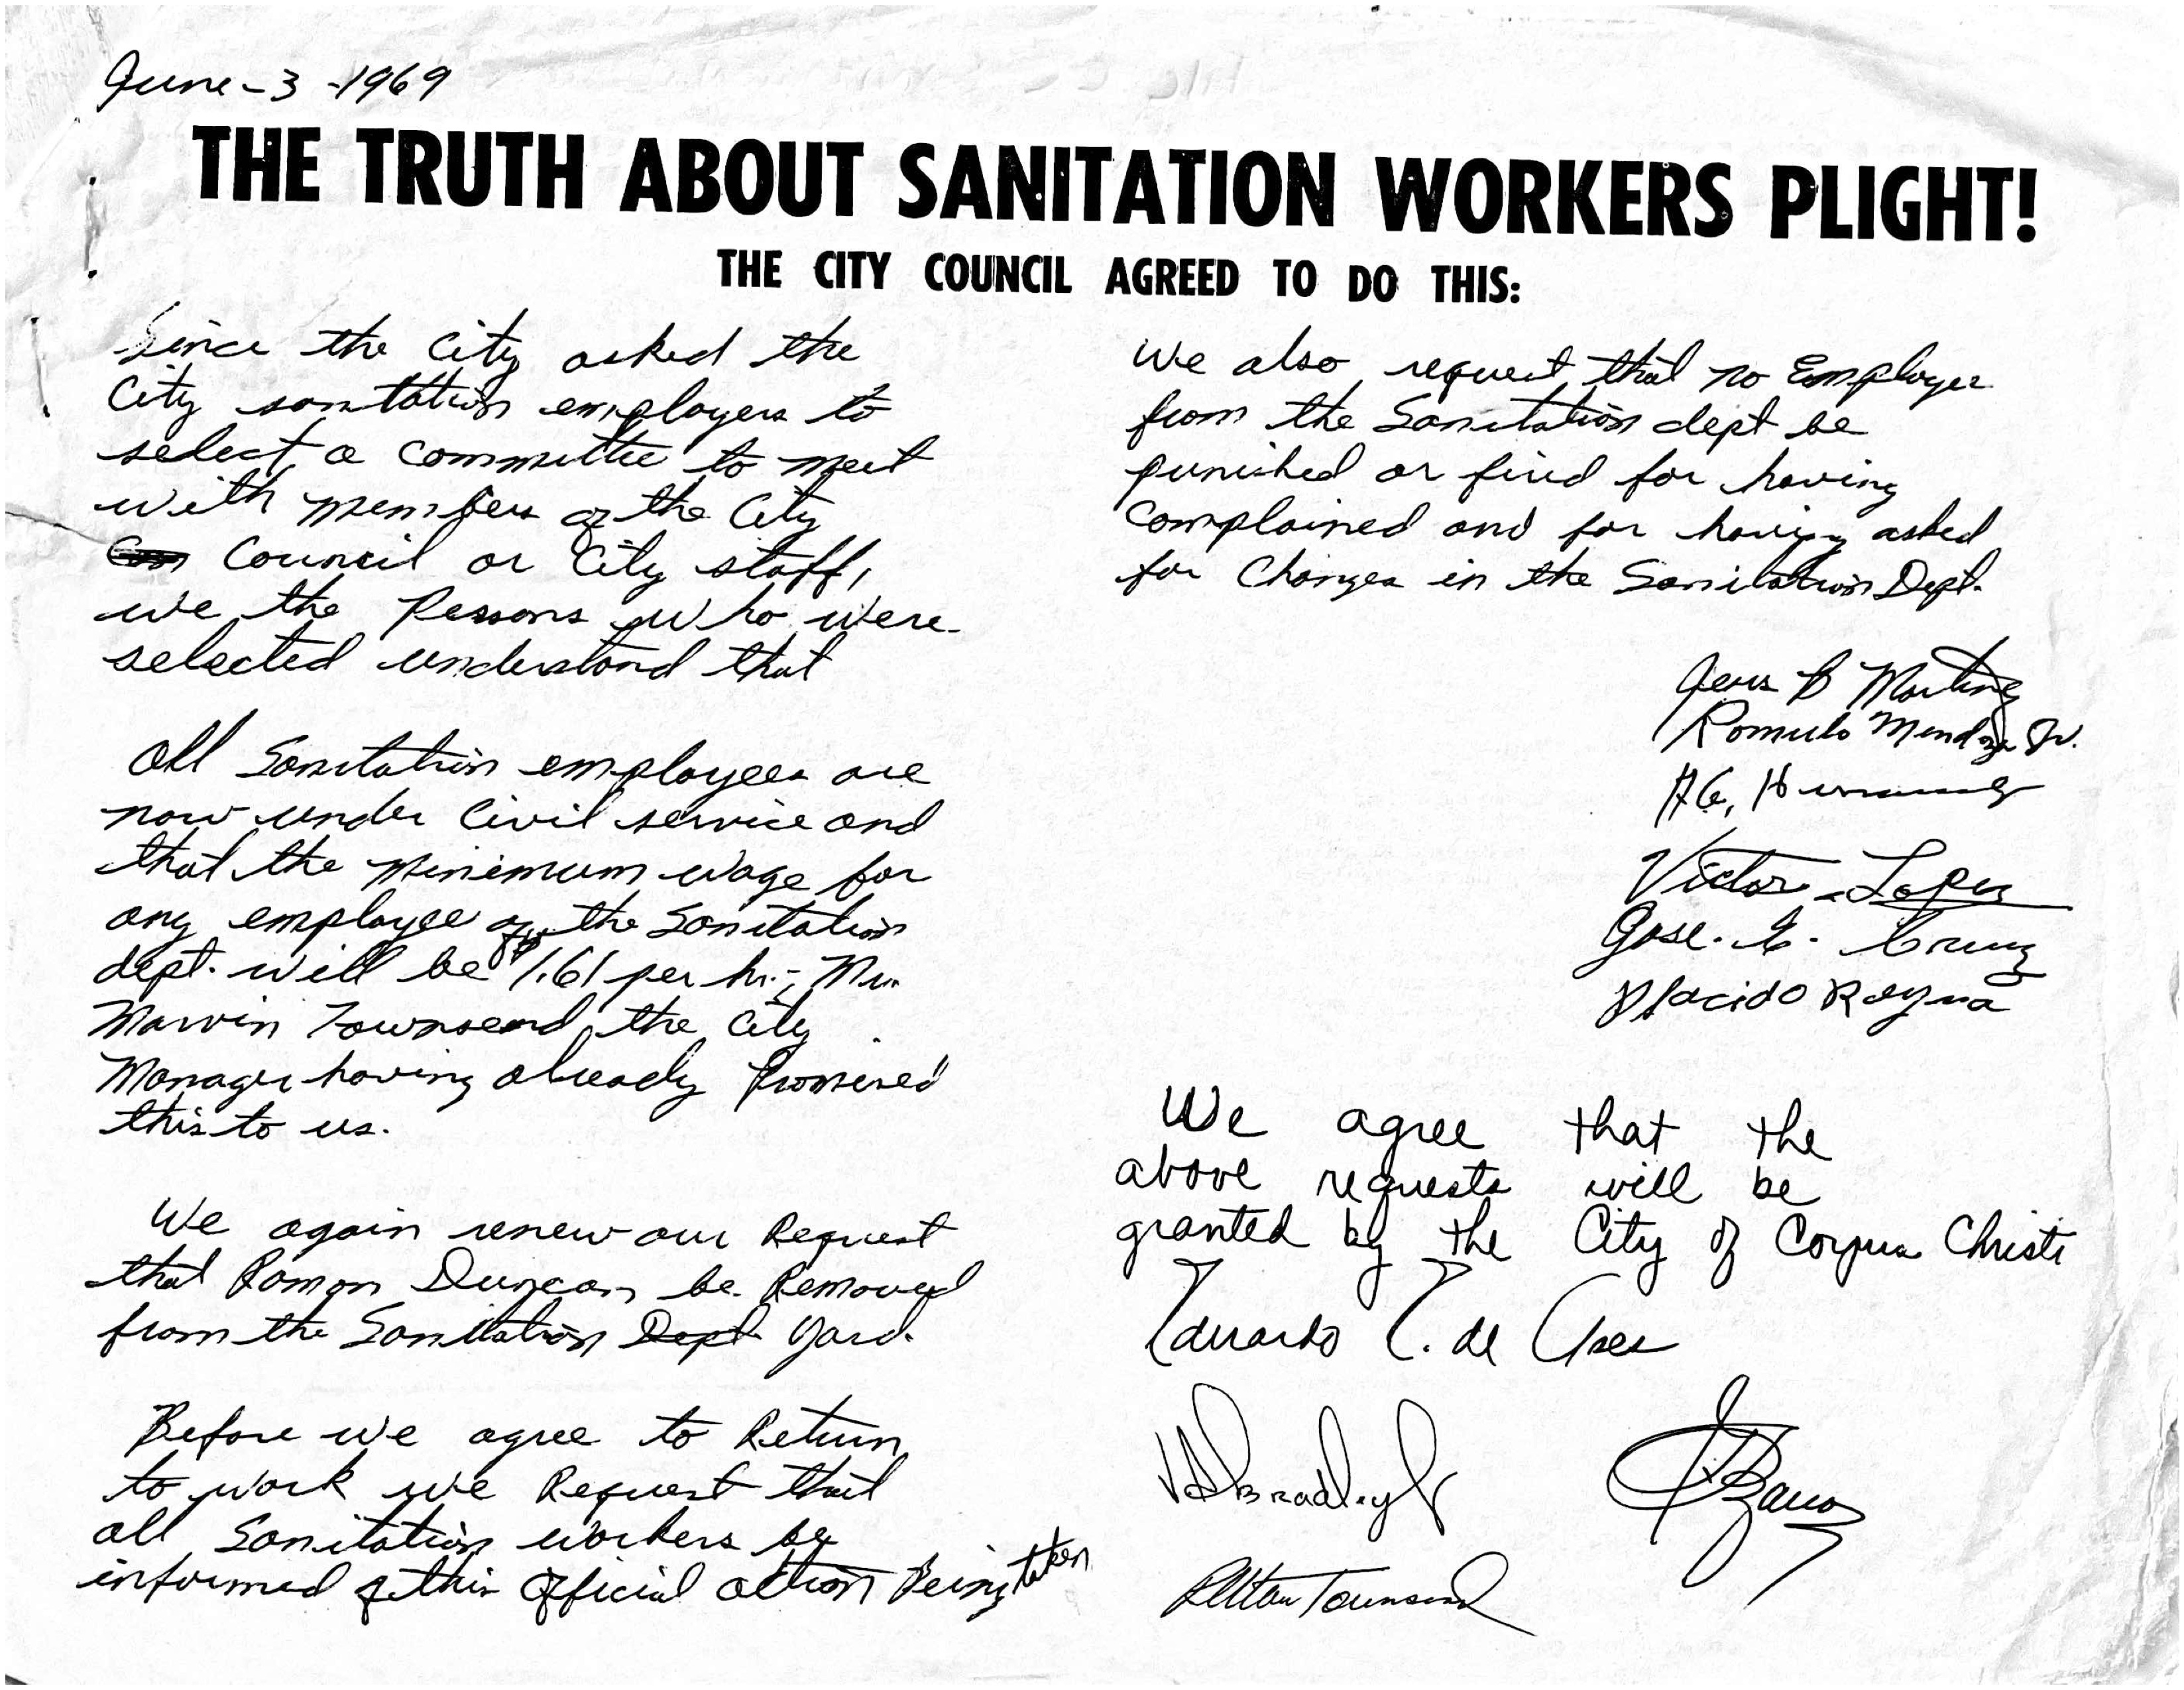 June-3-1969
THE TRUTH ABOUT SANITATION WORKERS PLIGHT!
THE CITY COUNCIL AGREED TO DO THIS:
Since the City asked the
City sanitation employees to
select a committee to meet
with members of the City
Council or City staff,
we the Persons who were
selected understand that
All Sanitation employees are
now under Civil service and
that the minimum wage for
any employee of the Sanitation
dept. will be $1.61 per hr.; Mr.
Marvin Townsend, the City
Manager having already Promised
this to us.
We again renew our Request
that Ramon Duncan be Removed
from the Sanitation Dept Yard.
Before we agree to Return
to work we Request that
all Sanitation workers be
informed of this Official action Being taken
We also request that no Employee
from the Sanitation dept be
punished or fired for having
complained and for having asked
for Changes in the Sanitation Dept.
B Martinez
Romulo Mendoza Jr.
Victor Lopez
Jose. E. Cruz
Placido Reyna
We agree that the
above requests will be
granted by the City of Corpus Christi
Eduardo E. de Ases
Bradley Jr
Townsend